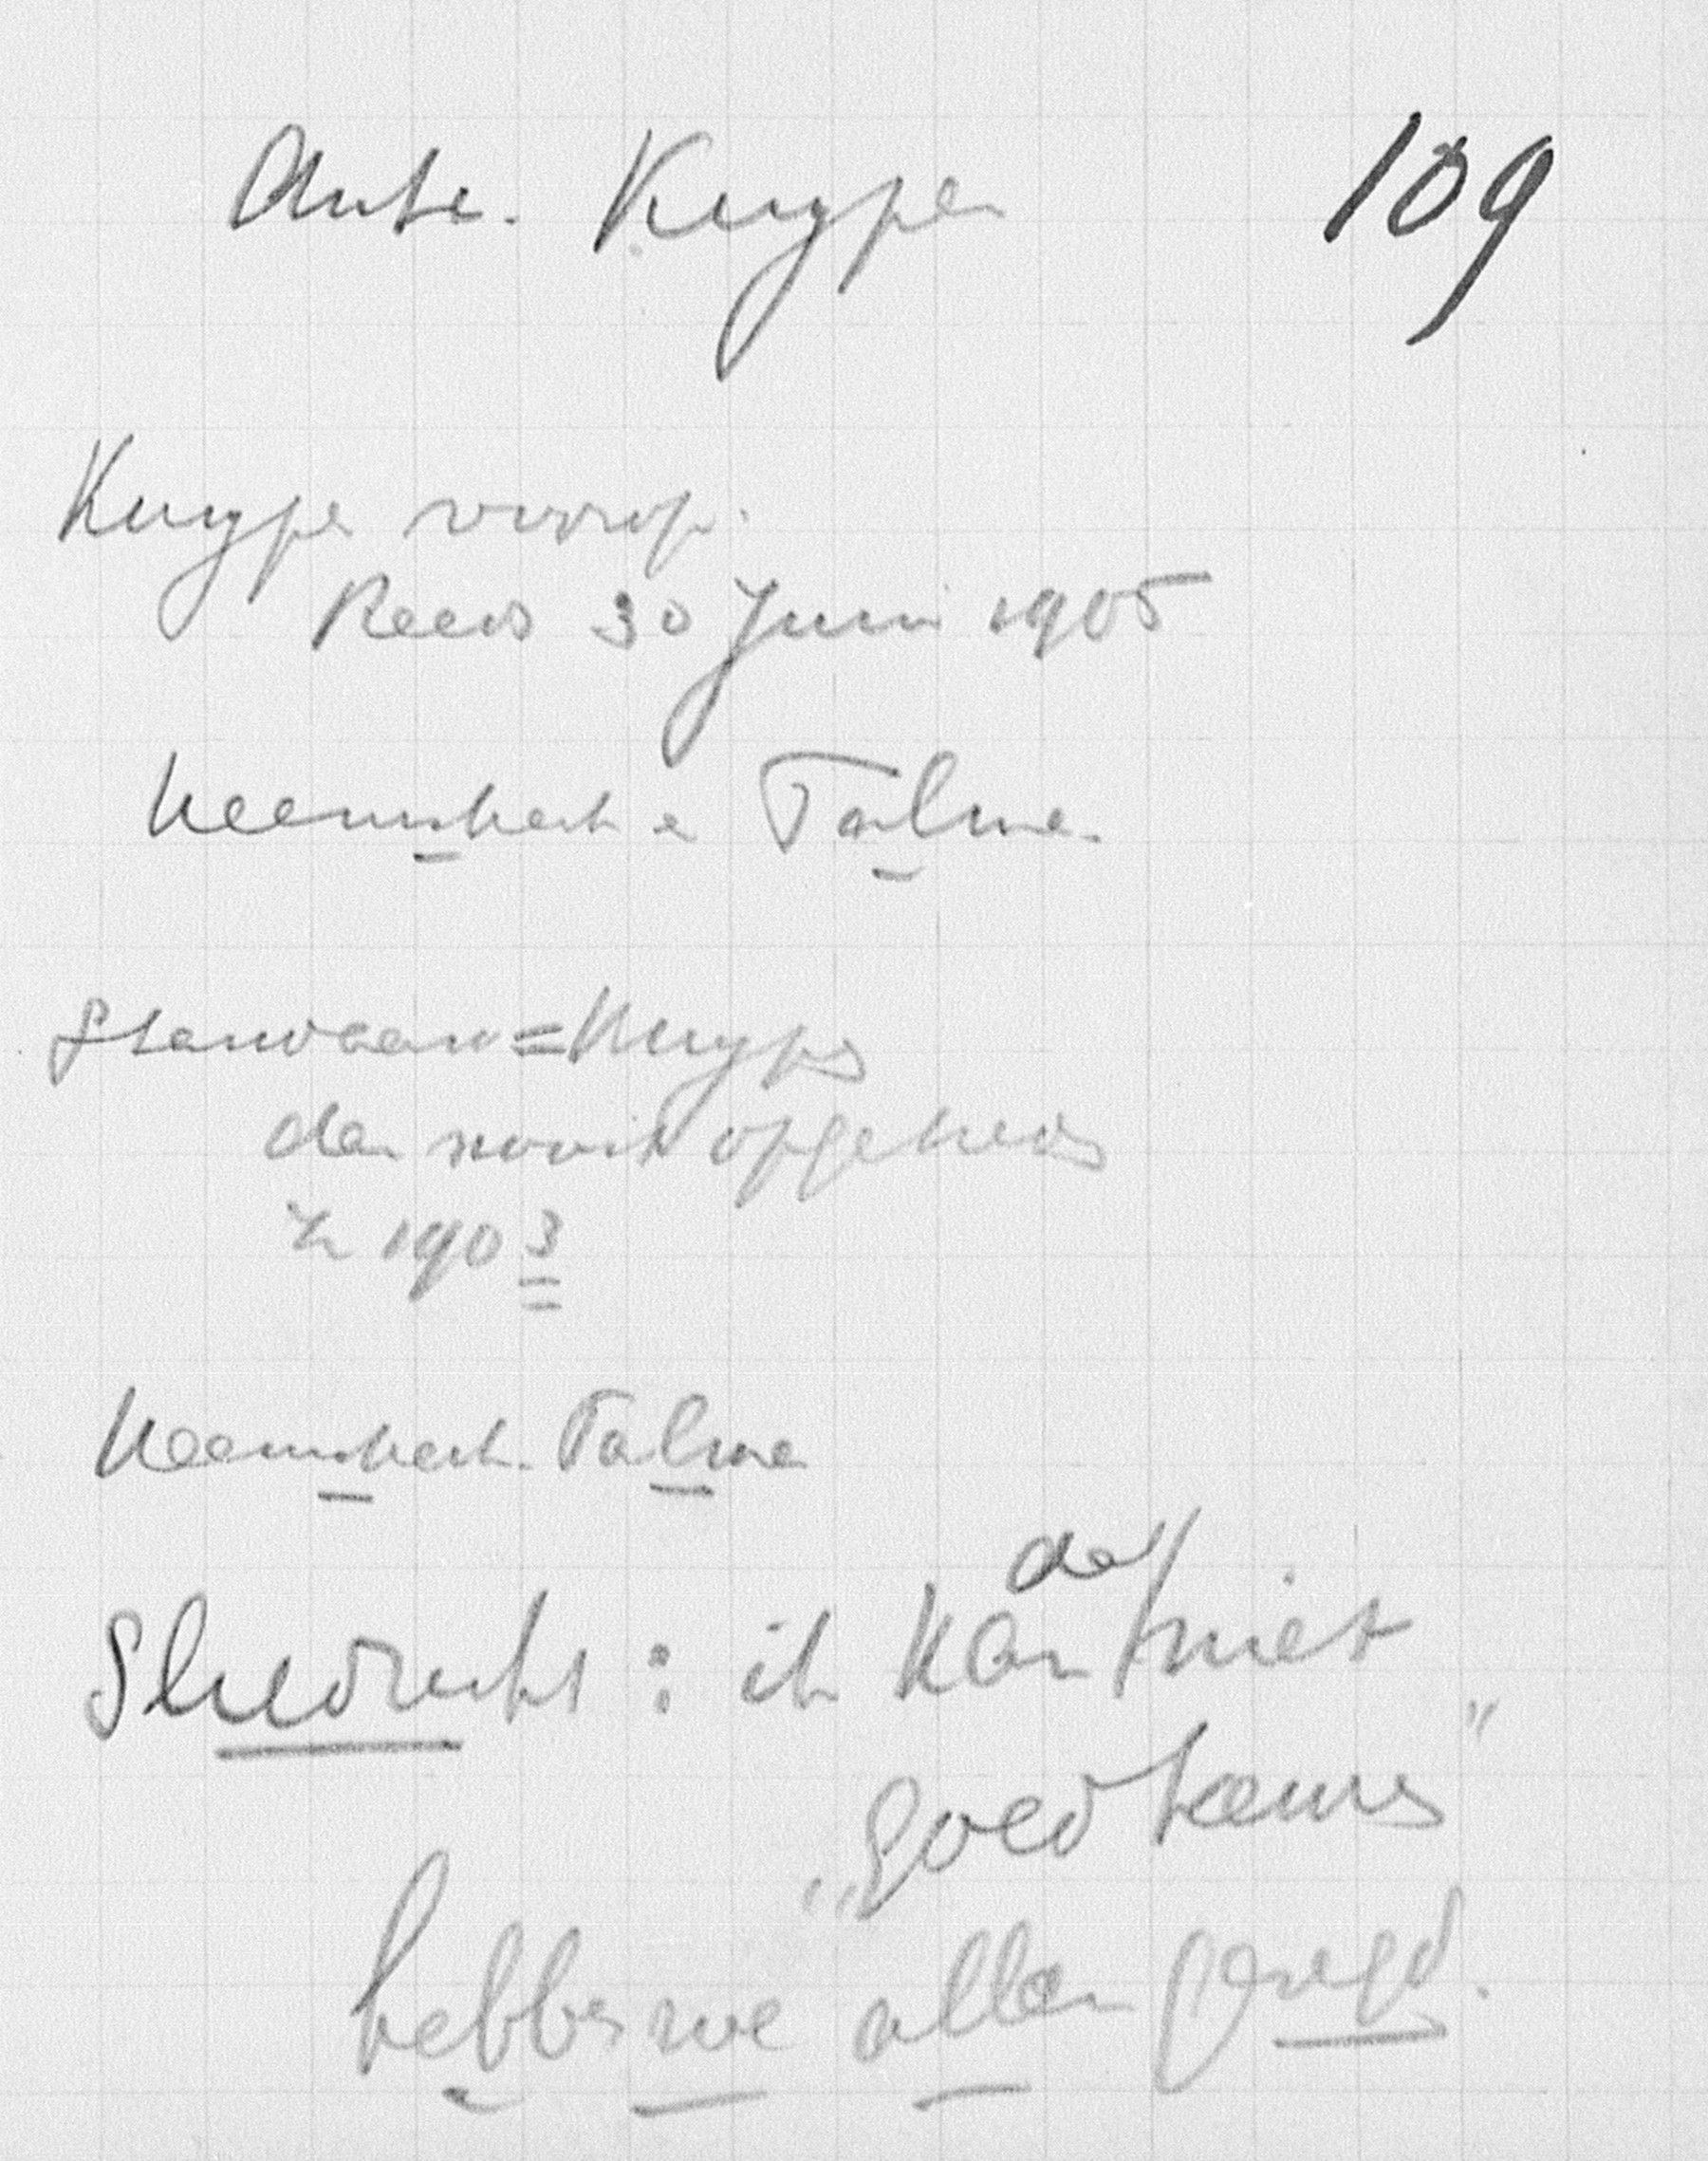 Ante. Kuyper 109
Kuyper voorop.
Reeds 30 Juni 1905
Heemskerk e Talma.
Standaard = Kuyper
den nooit opgeheven
In 1903
Heemskerk. Talma
Sliedrecht: ik kan dat niet
"goedkeuren"
hebben we allen gezegd.